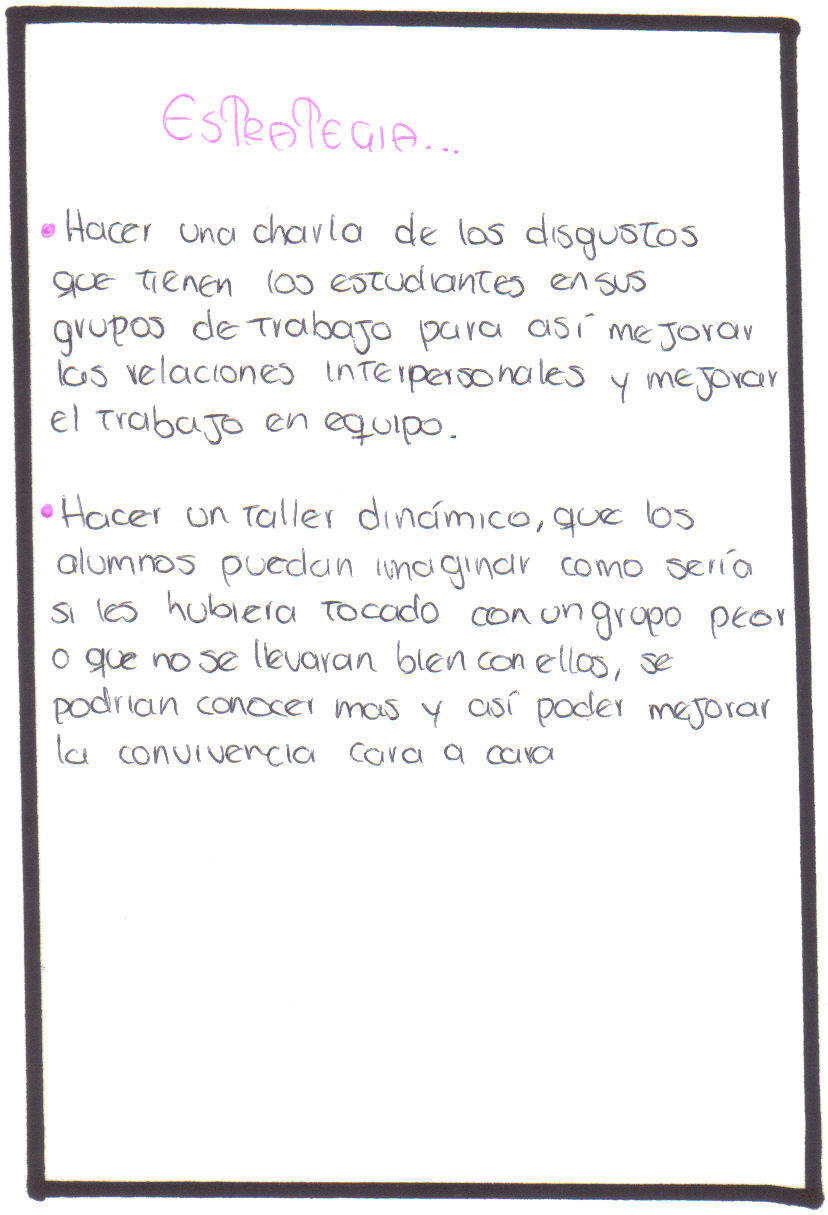 ESTRATEGIA...
• Hacer una charla de los disgustos
que tienen los estudiantes en sus
grupos de trabajo para así mejorar
las relaciones interpersonales y mejorar
el trabajo en equipo.
• Hacer un taller dinámico, que los
alumnos puedan imaginar como sería
si les hubiera tocado con un grupo peor
o que no se llevaran bien con ellos, se
podrian conocer mas y así poder mejorar
la convivencia cara a cara